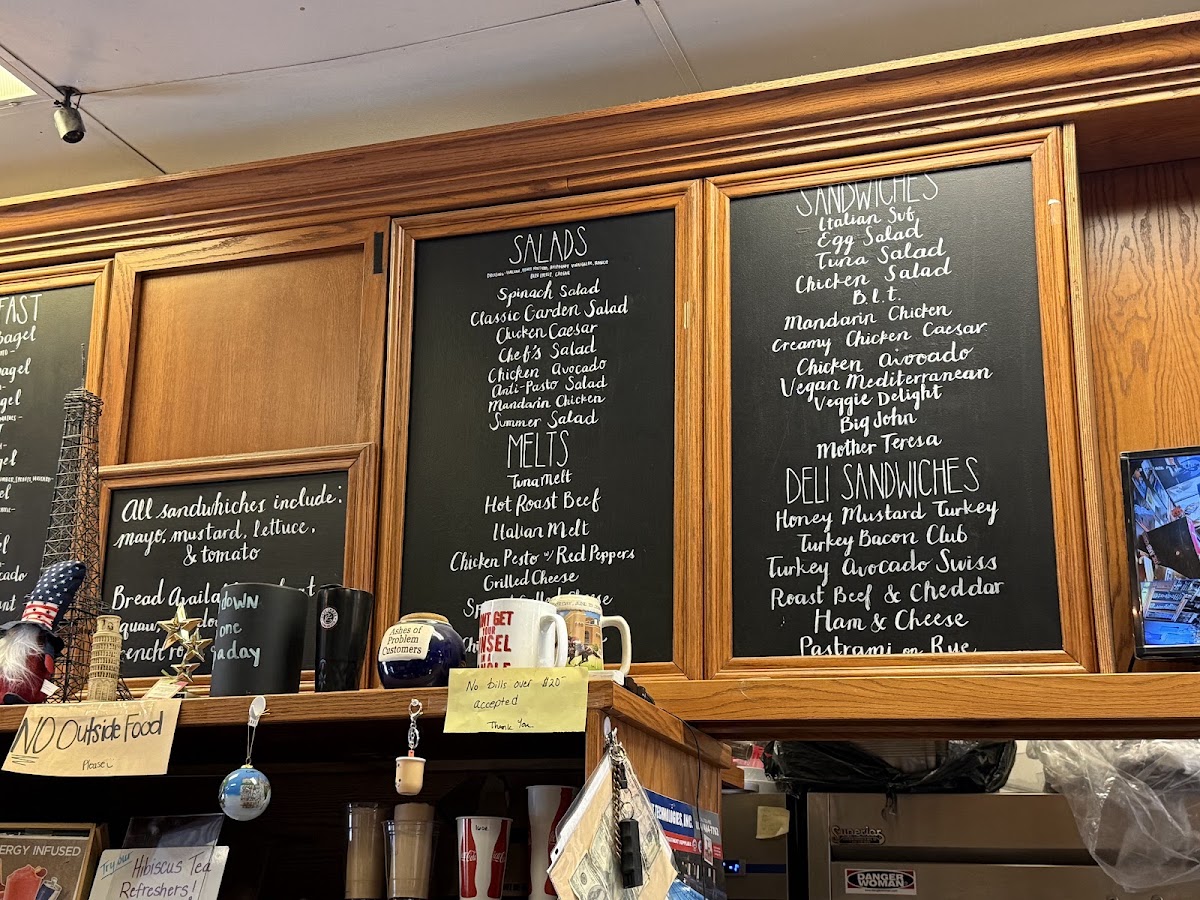 FAST
Bagel
SALADS
Spinach Salad
Classic Garden Salad
Chicken Caesar
Chef's Salad
Chicken Avocado
Anti-Pasto Salad
Mandarin Chicken
Summer Salad
MELTS
Tuna Melt
Hot Roast Beef
Italian Melt
Chicken Pesto w/ Red Peppers
Grilled Cheese
SANDWICHES
Italian Sub
Egg Salad
Tuna Salad
Chicken Salad
B.L.T.
Mandarin Chicken
Creamy Chicken Caesar
Chicken Avocado
Vegan Mediterranean
Veggie Delight
Big John
Mother Teresa
DELI SANDWICHES
Honey Mustard Turkey
Turkey Bacon Club
Turkey Avocado Swiss
Roast Beef & Cheddar
Ham & Cheese
Pastrami on Rye
All sandwhiches include:
mayo, mustard, lettuce,
& tomato
Bread
down
one
aday
Ashes of
Problem
Customers
GET
YOUR
No bills over $20-
accepted
Thank You
NO Outside Food
Please
ERGY INFUSED
Try our
Hibiscus Tea
Refreshers!
TECHNOLOGIES, INC.
Superior
DANGER
WOMAN